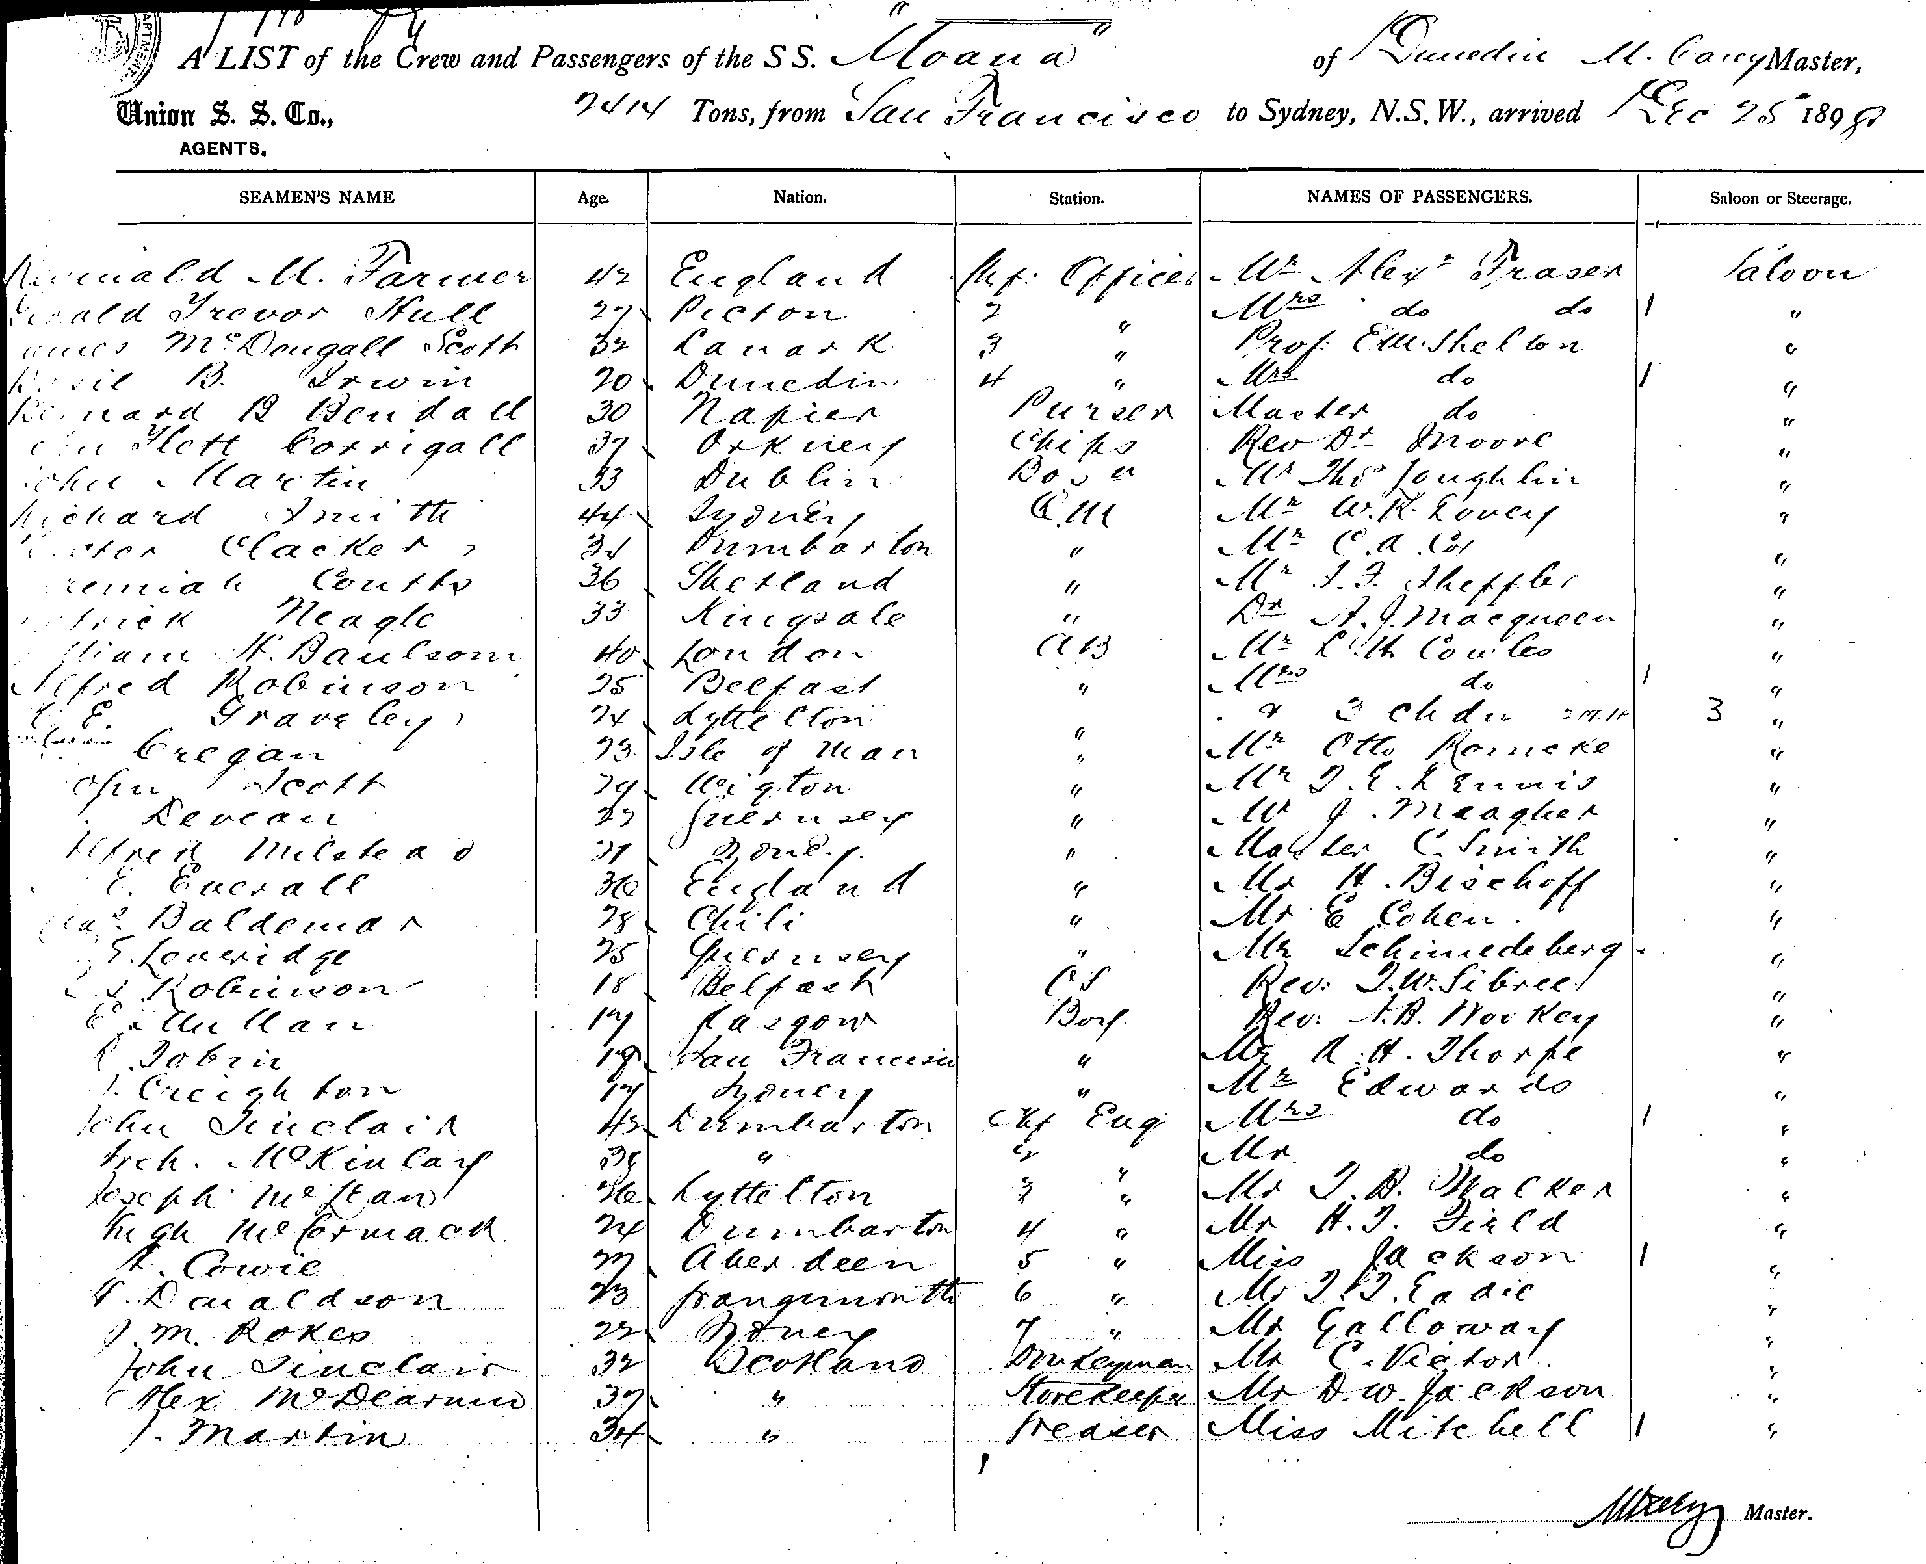 A LIST of the Crew and Passengers of the S S. "Moana" of Dunedin M. Carey Master,
Union S. S. Co., 2414 Tons, from San Francisco to Sydney, N.S.W., arrived Dec 25 1898
AGENTS.
SEAMEN'S NAME Age. Nation. Station. NAMES OF PASSENGERS. Saloon or Steerage.
M. Farmer 42 England Chf. Officer Mr Alexr Fraser Saloon
Trevor Hull 27 Picton 2 " Mrs do do 1 "
McDougall Scott 32 Lanark 3 " Prof. E.M. Shelton "
B. Irwin 20 Dunedin 4 " Mrs do 1 "
Bernard B Bendall 30 Napier Purser Master do "
Flett Corrigall 37 Orkney Chips Rev Dr Moore "
John Martin 33 Dublin Bosn Mr Thos Joughlin "
Richard Smith 44 Sydney Q.M Mr W.K. Lovery "
Clacker 34 Dumbarton " Mr C.A. "
Coutts 36 Shetland " Mr J. F. Sheffler "
Neagle 33 Kingsale " Dr A.J. Macqueen "
William H. Baulsom 40 London AB Mr Cowles "
Alfred Robinson 25 Belfast " Mrs do 1 "
E. Graveley 24 Lyttelton " & 3 chdn 3 "
Cregan 23 Isle of Man " Mr Otto Romcke "
John Scott 29 Wigton " Mr T. E. Ennis "
Devean 27 Guernsey " Mr J. Meagher "
Alfred Milstead Sydney " Master C. Smith "
E. Everall 36 England " Mr H. Bischoff "
Baldemar 28 Chili " Mr E Cohen. "
E. Loveridge 25 Guernsey " Mr Schmiedeberg "
Robinson 18 Belfast OS Rev. J. W. Sibree "
E. Mullan 17 Glasgow Boy Rev. A. B. Wookey "
Tobin San Francisco " Mr A. H. Thorpe "
J. Creighton 17 Sydney " Mr Edwards "
John Sinclair 43 Dumbarton Chf Eng Mrs do 1 "
Arch. McKinlay " 2 " Mr do "
Joseph McLean 26 Lyttelton 3 " Mr T. B. Walker "
Hugh McCormack 24 Dumbarton 4 " Mr H. T. Field "
A. Cowie 27 Aberdeen 5 " Miss Jackson 1 "
Donaldson 23 Grangemouth 6 " Mr J. T. Eadie "
J. M. Rokes 22 Sydney 7 " Mr Galloway "
John Sinclair 32 Scotland Donkeyman Mr C. Victor "
Alex McDearmid 37 " Storekeeper Mr D. W. Jackson "
J. Martin 34 " Greaser Miss Mitchell 1 "
MCarey Master.